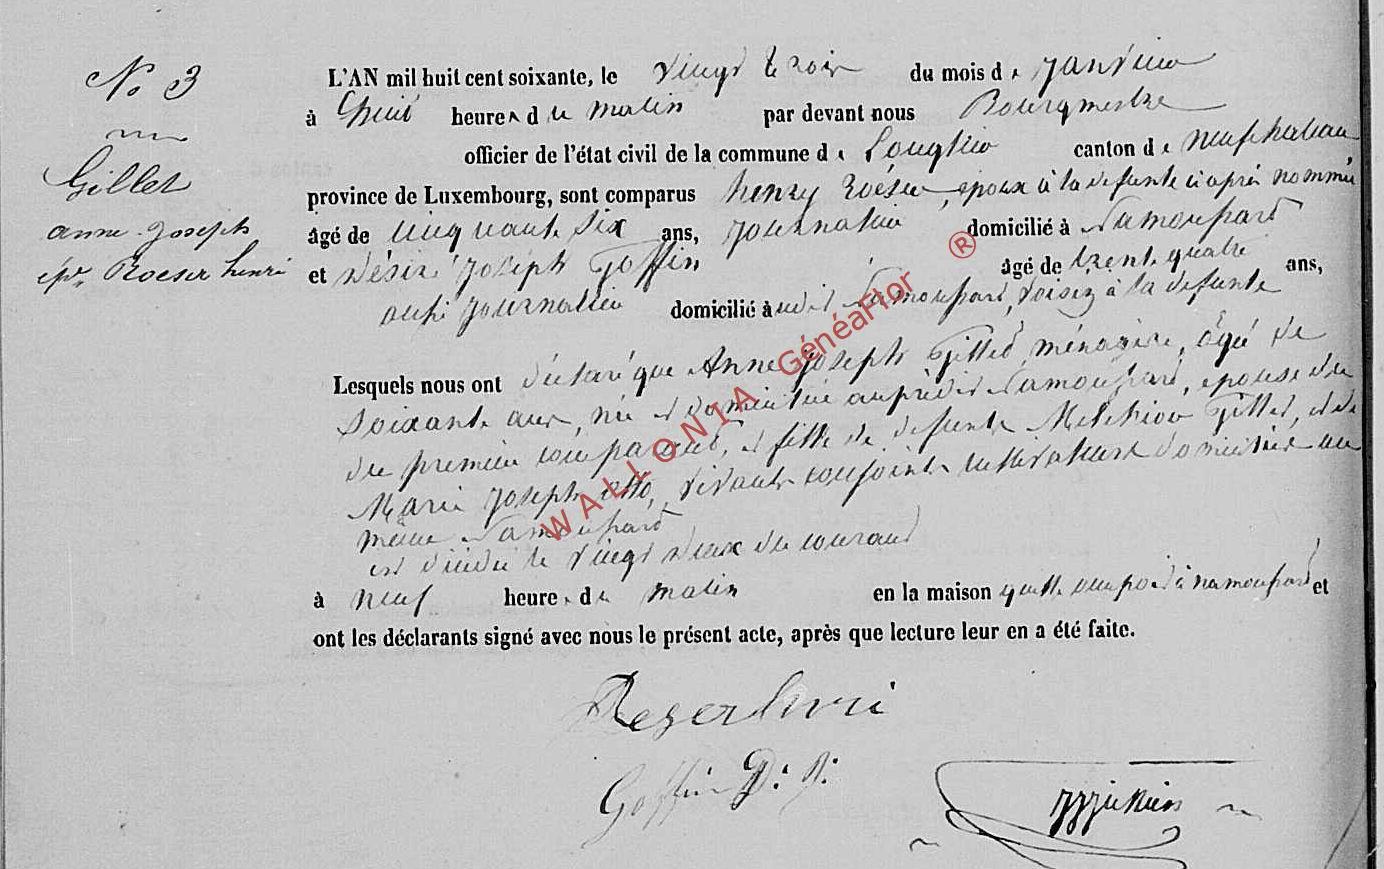 N° 3
Gillet
anne-Joseph
épse Roeser henri
L'AN mil huit cent soixante, le vingt trois du mois de Janvier
à huit heures du matin par devant nous Bourgmestre
officier de l'état civil de la commune de Longlier canton de neufchateau
province de Luxembourg, sont comparus henry Roéser, époux à la defunte ci après nommée
âgé de cinquante six ans, Journalier domicilié à Namoussart
et Désiré Joseph Goffin âgé de trente quatre ans,
aussi Journalier domicilié à udit Namoussart, voisin à la defunte
Lesquels nous ont déclaré que Anne Joseph Gillet ménagère, âgée de
soixante ans, née et domiciliée au prédit Namoussart, epouse du
du premier comparant, et fille de defunts Melchior Gillet, et de
Marie Joseph otto, vivants conjoints cultivateurs domiciliés au
même Namoussart
est décédée le vingt deux du courant
à neuf heures du matin en la maison qu'elle occupoit à namoussart et
ont les déclarants signé avec nous le présent acte, après que lecture leur en a été faite.
Reser henri
Goffin D: J:
WALLONIA GénéaFlor ®